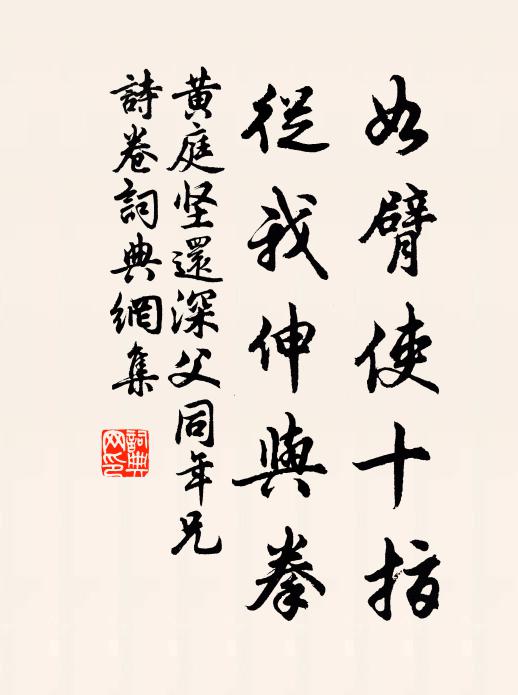 如臂使十指
從我伸與拳
黄庭坚還深父同年兄
詩卷詞典網集
詞典网印